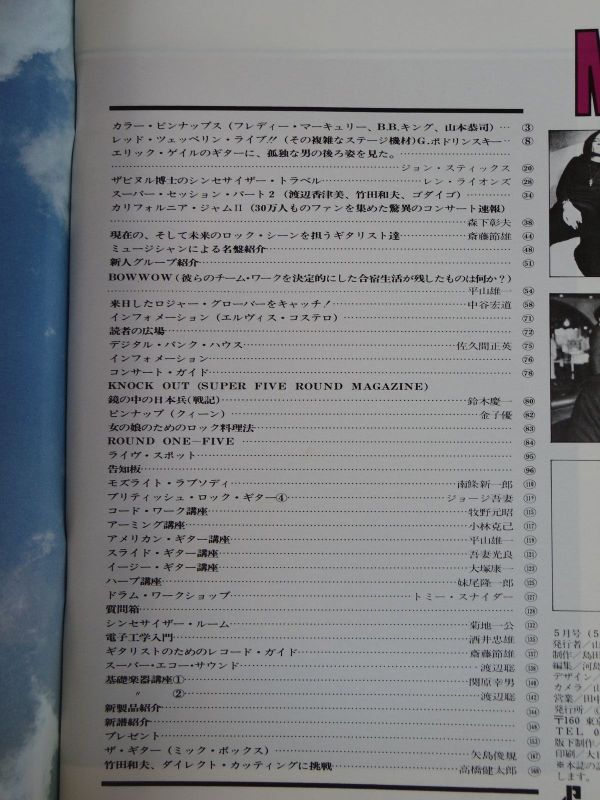 カラー・ピンナップス (フレディー・マーキュリー、B.B.キング、山本恭司) … ③
レッド・ツェッペリン・ライブ!! (その複雑なステージ機材)G.ポドリンスキー… ⑧
エリック・ゲイルのギターに、孤独な男の後ろ姿を見た。
ジョン・スティックス ⑳
ザビヌル博士のシンセサイザー・トラベル レン・ライオンズ ㉘
スーパー・セッション・パート2 (渡辺香津美、竹田和夫、ゴダイゴ) ㉞
カリフォルニア・ジャムII (30万人ものファンを集めた驚異のコンサート速報)
森下彰夫 ㊳
現在の、そして未来のロック・シーンを担うギタリスト達 斎藤節雄 ㊹
ミュージシャンによる名盤紹介 ㊽
新人グループ紹介 51
BOWWOW (彼らのチーム・ワークを決定的にした合宿生活が残したものは何か?)
平山雄一 54
来日したロジャー・グローバーをキャッチ! 中谷宏道 58
インフォメーション (エルヴィス・コステロ) 71
読者の広場 72
デジタル・バンク・ハウス 佐久間正英 75
インフォメーション 76
コンサート・ガイド 78
KNOCK OUT (SUPER FIVE ROUND MAGAZINE)
鏡の中の日本兵(戦記) 鈴木慶一 80
ピンナップ (クィーン) 金子優 82
女の娘のためのロック料理法 83
ROUND ONE—FIVE 84
ライヴ・スポット 95
告知板 96
モズライト・ラプソディ 南條新一郎 110
ブリティッシュ・ロック・ギター④ ジョージ吾妻
コード・ワーク講座 牧野元昭 115
アーミング講座 小林克己 117
アメリカン・ギター講座 平山雄一 119
スライド・ギター講座 吾妻光良 121
イージー・ギター講座 大塚康一 123
ハープ講座 妹尾隆一郎 125
ドラム・ワークショップ トミー・スナイダー 127
質問箱
シンセサイザー・ルーム 菊地一公
電子工学入門 酒井忠雄
ギタリストのためのレコード・ガイド 斎藤節雄 137
スーパー・エコー・サウンド 渡辺聡
基礎楽器講座① 関原幸男 140
〃 ② 渡辺聡 142
新製品紹介 144
新譜紹介
プレゼント 153
ザ・ギター (ミック・ボックス) 矢島俊規 167
竹田和夫、ダイレクト・カッティングに挑戦 高橋健太郎 168
M
5月号 (5
発行者/山
制作/島田
編集/河島
デザイン/
カメラ/山
営業/田中
発行所/
〒160 東京
TEL 0
版下制作/
印刷/大
※本誌の記
します。